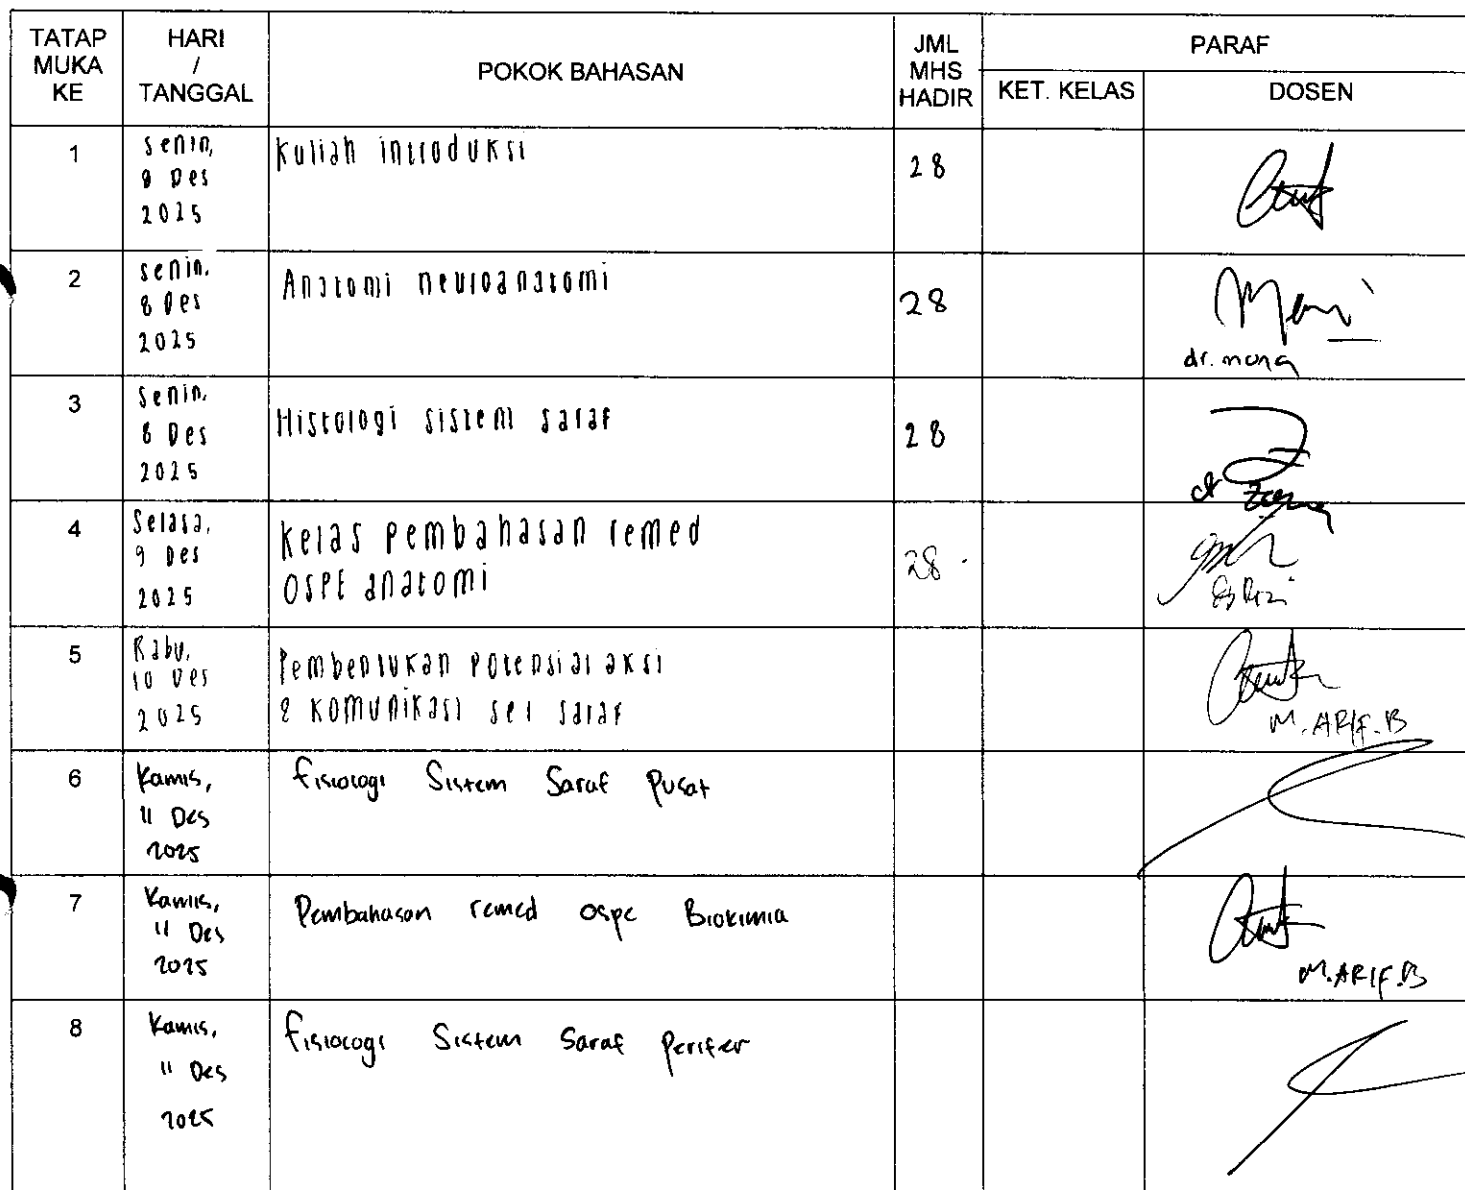 TATAP MUKA KE	HARI / TANGGAL	POKOK BAHASAN	JML MHS HADIR	PARAF
KET. KELAS	DOSEN
1	Senin, 8 Des 2025	Kuliah introduksi	28
2	Senin, 8 Des 2025	Anatomi neuroanatomi	28	dr. mona
3	Senin, 8 Des 2025	Histologi sistem saraf	28	dr
4	Selasa, 9 Des 2025	Kelas pembahasan remed
OSPE anatomi	28
5	Rabu, 10 Des 2025	Pembentukan potensial aksi
& komunikasi sel saraf	M. ARIF. B
6	Kamis, 11 Des 2025	Fisiologi Sistem Saraf Pusat
7	Kamis, 11 Des 2025	Pembahasan remed ospe Biokimia	M. ARIF. B
8	Kamis, 11 Des 2025	Fisiologi Sistem Saraf Perifer